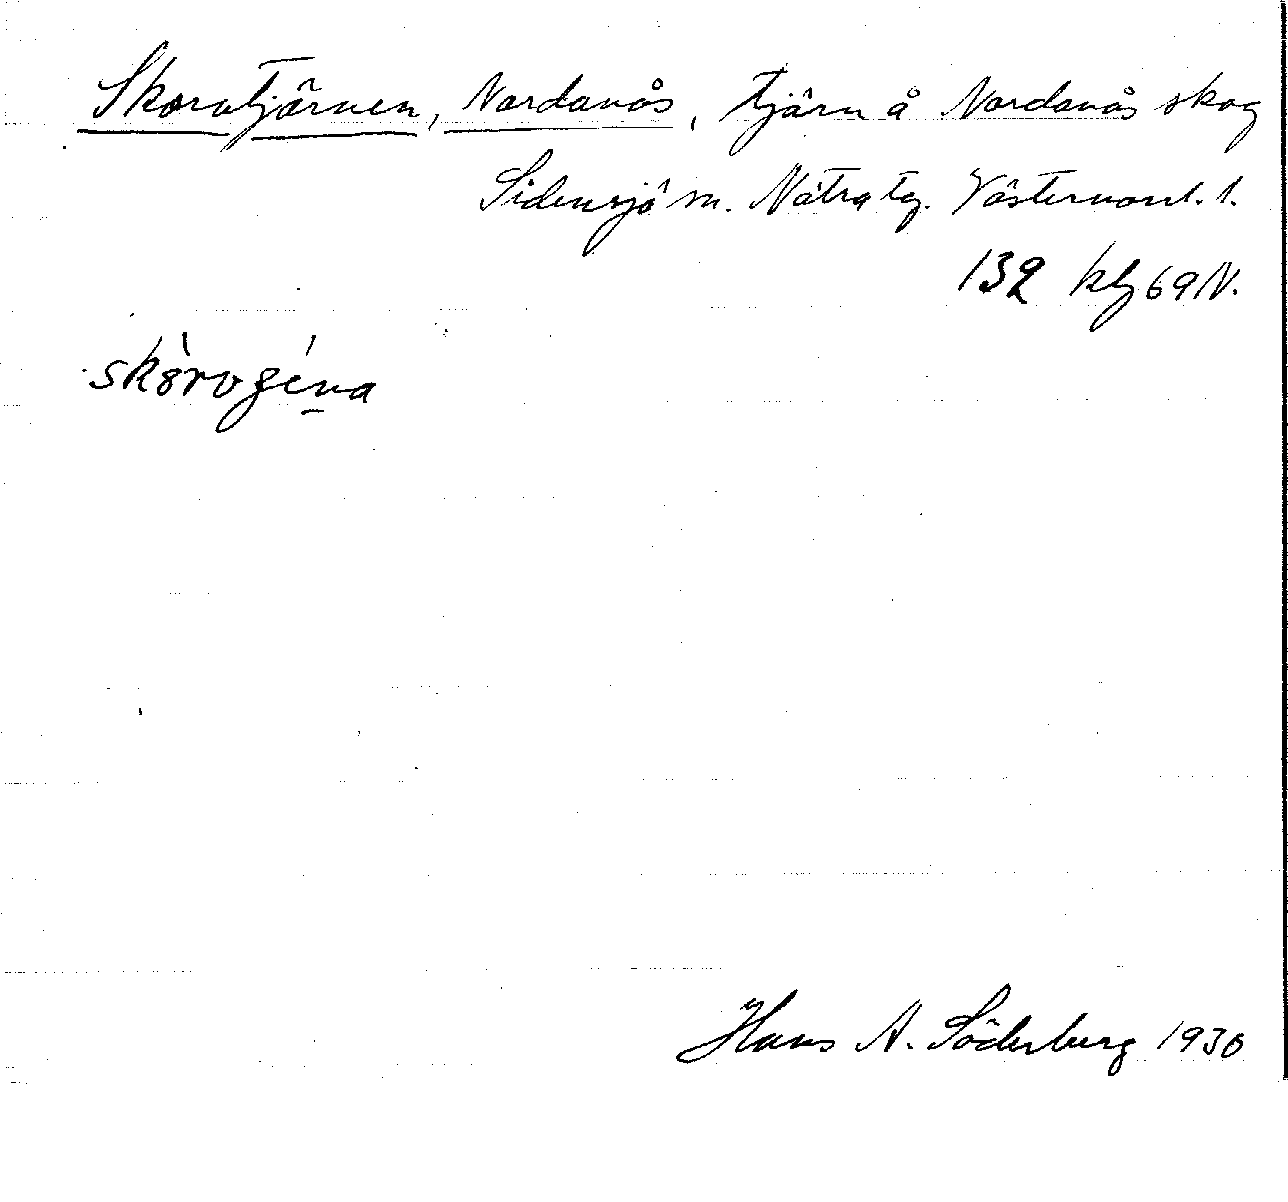 Skorvtjärnen, Nordanås, tjärn å Nordanås skog
Sidensjö sn. Nätra tg. Västernorrl. l.
132 kbg 69 N.
Hans A. Söderberg 1930